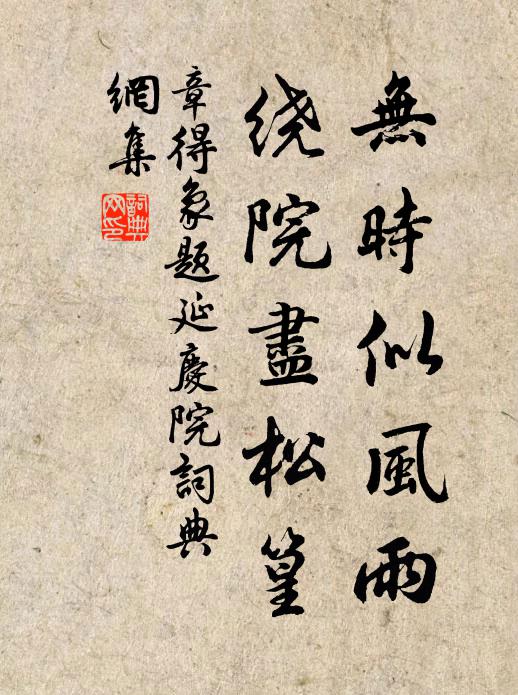 無時似風雨
绕院盡松篁
章得象題延慶院詞典
網集
詞典網印